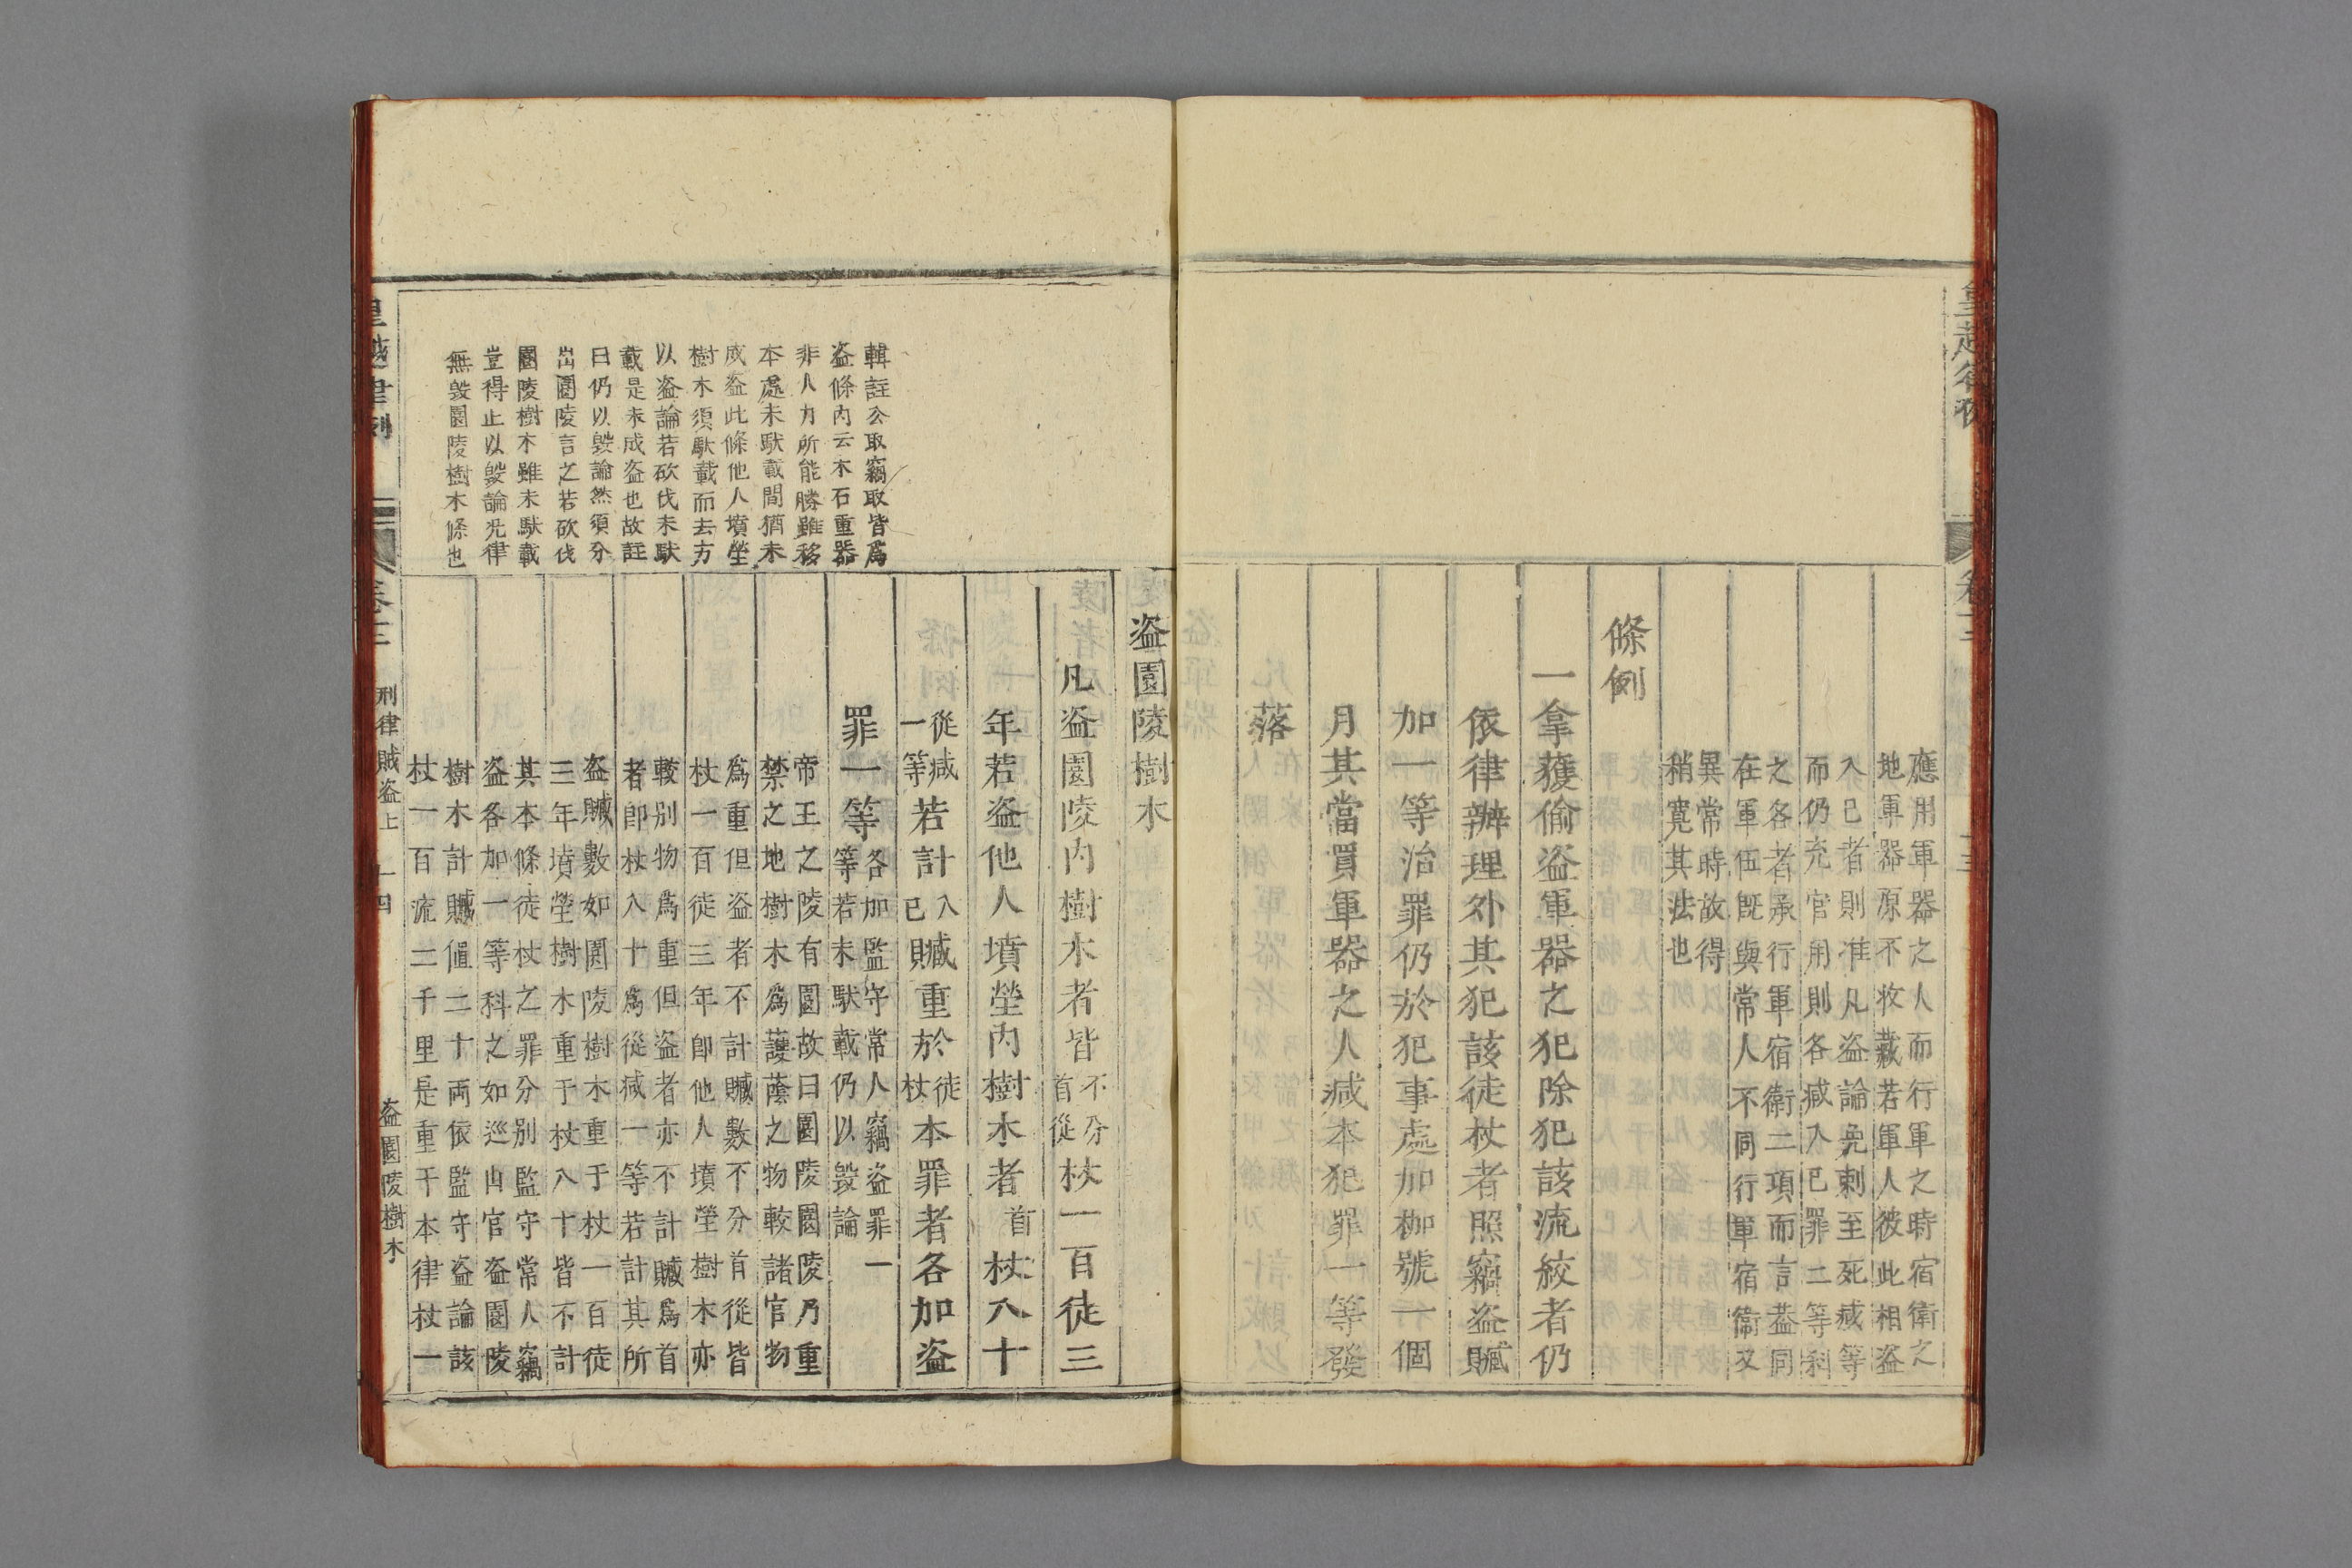 應用軍器之人而行軍之時宿衛之
地軍器原不收藏若軍人彼此相盗
入己者則准凡盗論免剌至死減等
而仍充官用則各減入己罪二等科
之各者承行軍宿衛二項而言葢同
在軍伍旣與常人不同行軍宿衛又
異常時故得
稍寬其法也
條例
一拿獲偷盗軍器之犯除犯該流絞者仍
依律辦理外其犯該徒杖者照竊盗贓
加一等治罪仍於犯事處加枷號一個
月其當買軍器之人減本犯罪一等發
落
輯註公取竊取皆爲
盗條內云木石重器
非人力所能勝雖移
本處未馱載間猶未
成盗此條他人墳塋
樹木須馱載而去方
以盗論若砍伐未馱
載是未成盗也故註
曰仍以毀論然須分
出園陵言之若砍伐
園陵樹木雖未馱載
豈得止以毀論况律
無毀園陵樹木條也
盗園陵樹木
凡盗園陵內樹木者皆不分首從杖一百徒三
年若盗他人墳塋內樹木者首杖八十
從減一等若計入己贓重於徒杖本罪者各加盗
罪一等各加監守常人竊盗罪一等若未馱載仍以毀論
帝王之陵有園故曰園陵園陵乃重
禁之地樹木爲護蔭之物較諸官物
爲重但盗者不計贓數不分首從皆
杖一百徒三年卽他人墳塋樹木亦
較别物爲重但盗者亦不計贓爲首
者卽杖八十爲從減一等若計其所
盗贓數如園陵樹木重于杖一百徒
三年墳塋樹木重于杖八十皆不計
其本條徒杖之罪分别監守常人竊
盗各加一等科之如巡山官盗園陵
樹木計贓值二十両依監守盗論該
杖一百流二千里是重于本律杖一
皇越律例
卷十二
刑律賊盗上
十四
盗園陵樹木